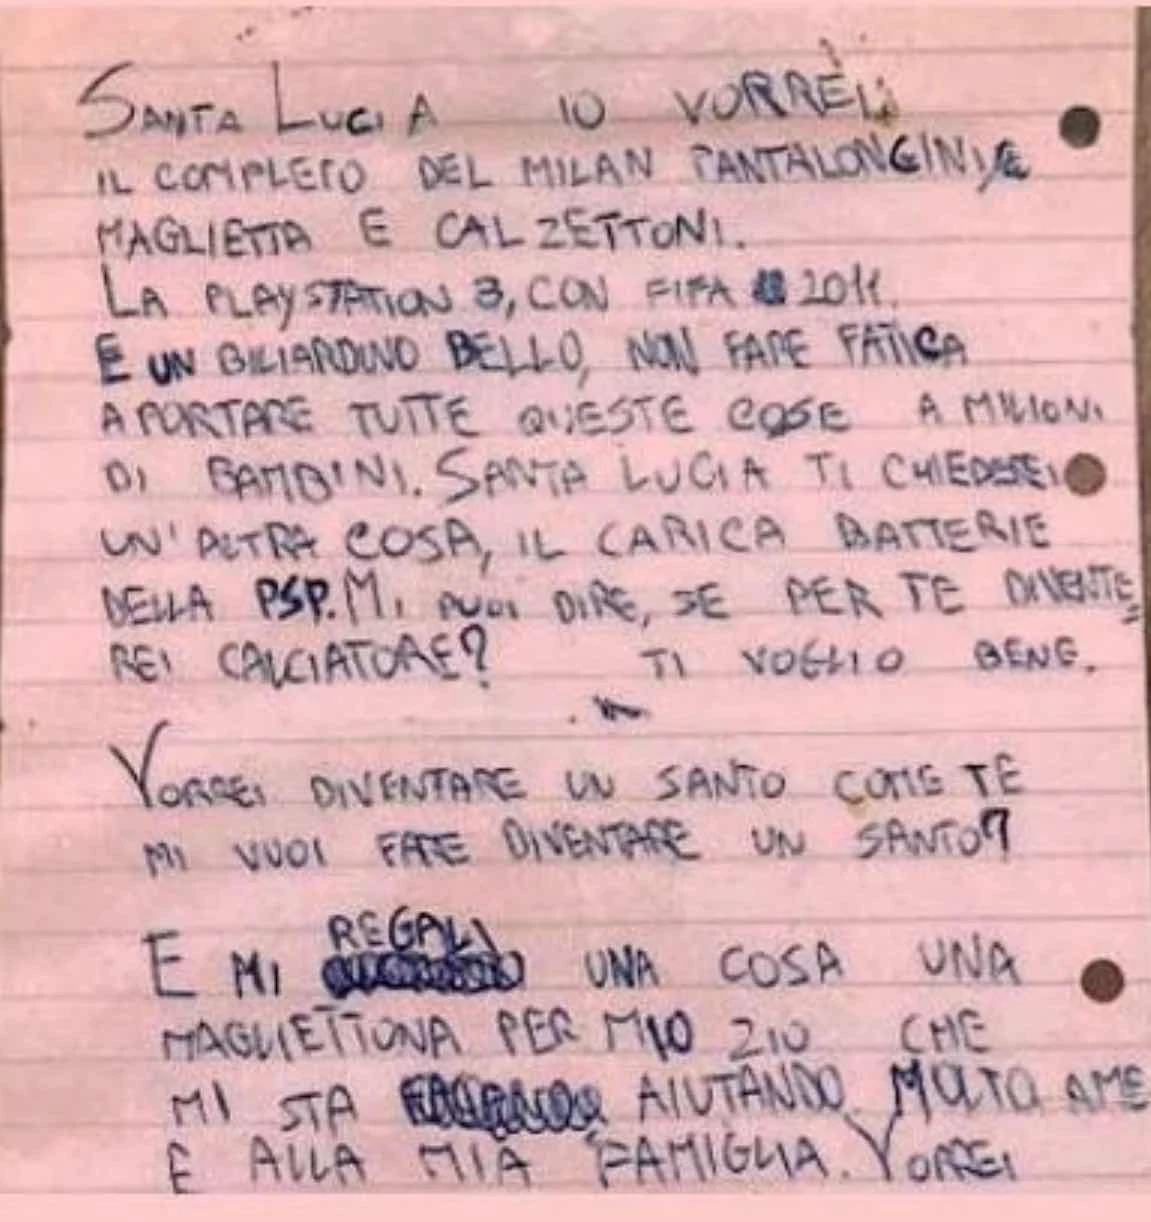 SANTA LUCIA IO VORREI:
IL COMPLETO DEL MILAN PANTALONCINI E
MAGLIETTA E CALZETTONI.
LA PLAYSTATION 3, CON FIFA 2011.
E UN BILIARDINO BELLO, NON FARE FATICA
A PORTARE TUTTE QUESTE COSE A MILIONI
DI BAMBINI. SANTA LUCIA TI CHIEDEREI
UN'ALTRA COSA, IL CARICA BATTERIE
DELLA PSP. MI PUOI DIRE, SE PER TE DIVENTE=
REI CALCIATORE? TI VOGLIO BENE.
VORREI DIVENTARE UN SANTO COME TE
MI VUOI FARE DIVENTARE UN SANTO?
E MI REGALI UNA COSA UNA
MAGLIETTONA PER MIO ZIO CHE
MI STA AIUTANDO MOLTO AME
E ALLA MIA FAMIGLIA. VORREI